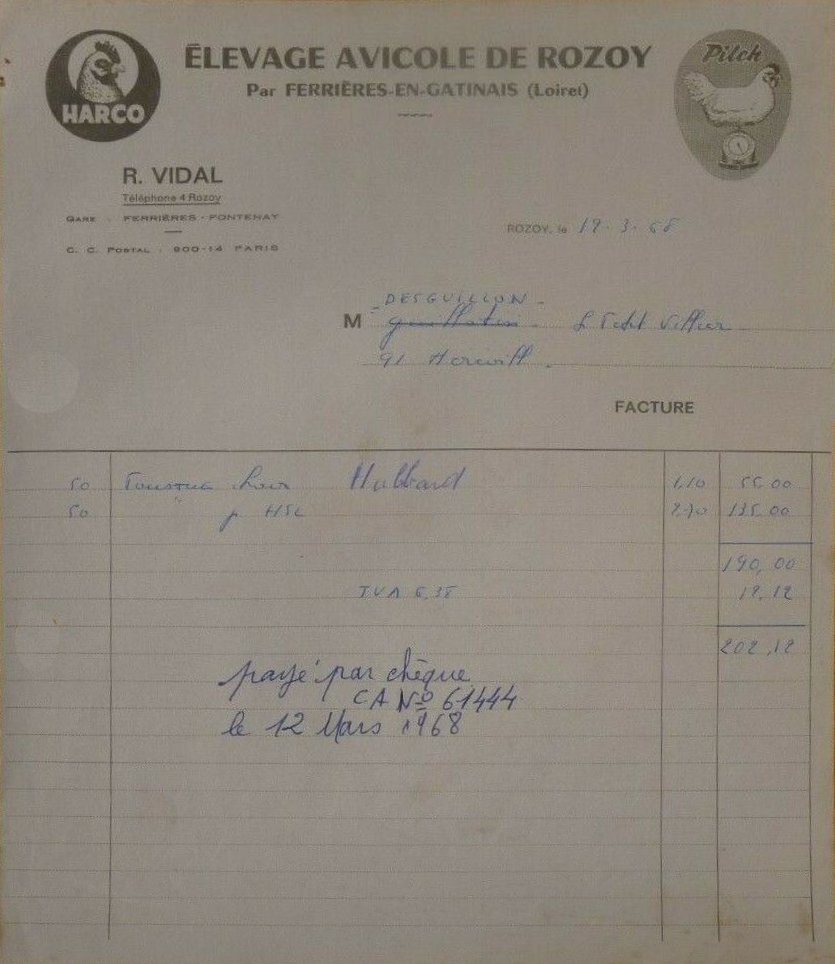 HARCO
ÉLEVAGE AVICOLE DE ROZOY
Par FERRIÈRES-EN-GATINAIS (Loiret)
Pilch
R. VIDAL
Téléphone 4 Rozoy
GARE : FERRIÈRES - FONTENAY
C. C. POSTAL : 900-14 PARIS
ROZOY, le 12.3.68
- DESGUILLON -
M
91
FACTURE
50 Hubbard 1,10 55.00
50 2.70 135.00
190,00
TVA 6,38 12,12
202,12
payé par chèque
CA Nº 61444
le 12 Mars 1968